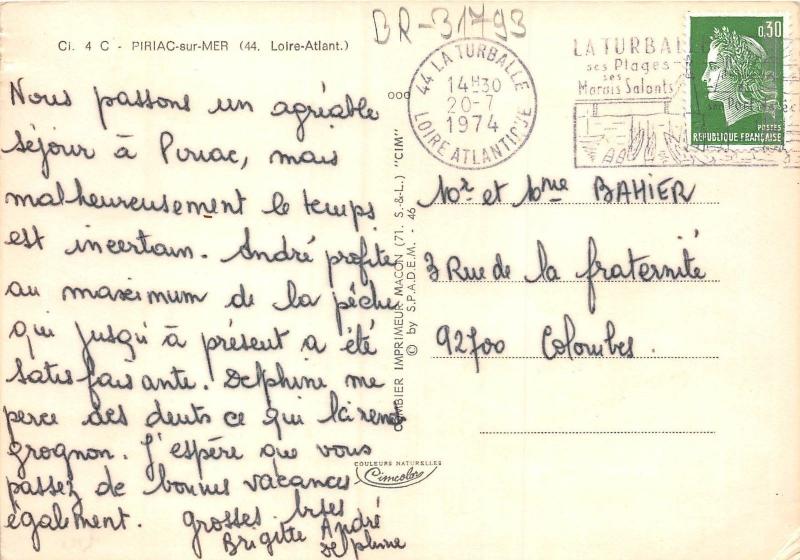 BR-31793
Ci. 4 C - PIRIAC-sur-MER (44. Loire-Atlant.)
Nous passons un agréable
séjour à Piriac, mais
malheureusement le temps
est incertain. André profite
au maximum de la pêche
qui jusqu'à présent a été
satisfaisante. Delphine me
perce des dents ce qui la rend
grognon. J'espère que vous
passez de bonnes vacances
également. grosses bises
Brigitte André
Delphine
COMBIER IMPRIMEUR MACON (71. S.-&-L.) "CIM"
© by S.P.A.D.E.M. - 46
COULEURS NATURELLES
Cimcolor
44 LA TURBALLE
14H30
20-7
1974
LOIRE ATLANTIQUE
LA TURBALLE
ses Plages
ses
Marais Salants
0,30
POSTES
REPUBLIQUE FRANÇAISE
Mr et Mme BAHIER
3 Rue de la fraternité
92700 Colombes.